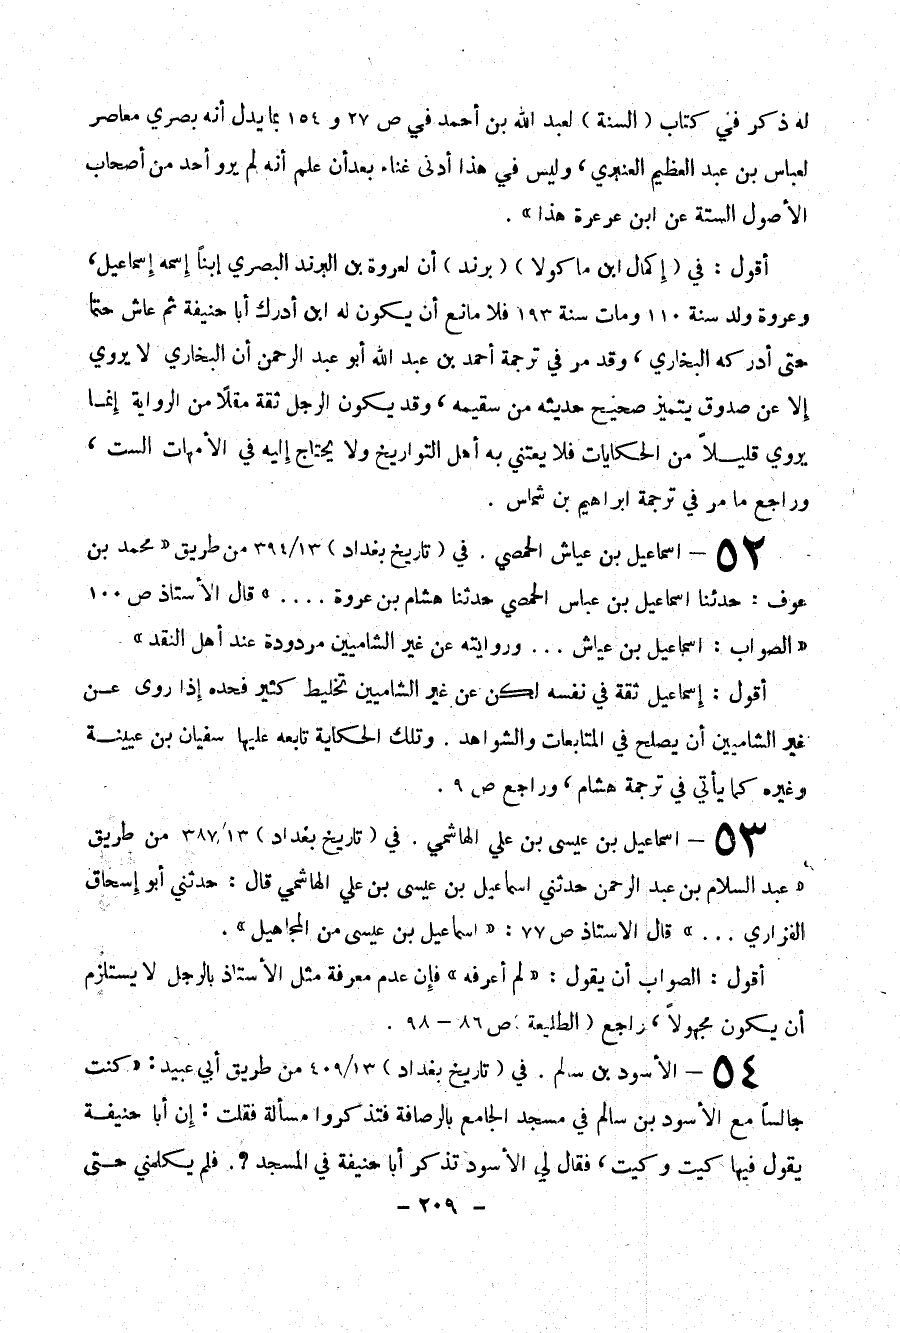 له ذكر في كتاب ( السنة ) لعبد الله بن أحمد في ص ٢٧ و ١٥٤ بما يدل أنه بصري معاصر
لعباس بن عبد العظيم العنبري ، وليس في هذا أدنى غناء بعدأن علم أنه لم يرو أحد من أصحاب
الأصول الستة عن ابن عرعرة هذا » .
أقول : في ( إكمال ابن ماكولا ) ( برند ) أن لعروة بن البرند البصري إبناً إسمه إسماعيل ،
وعروة ولد سنة ١١٠ ومات سنة ١٩٣ فلا مانع أن يكون له ابن أدرك أبا حنيفة ثم عاش حتما
حتى أدركه البخاري ، وقد مر في ترجمة أحمد بن عبد الله أبو عبد الرحمن أن البخاري لا يروي
إلا عن صدوق يتميز صحيح حديثه من سقيمه ، وقد يكون الرجل ثقة مقلاً من الرواية إنما
يروي قليلاً من الحكايات فلا يعتني به أهل التواريخ ولا يحتاج إليه في الأمهات الست ،
وراجع ما مر في ترجمة ابراهيم بن شماس .
٥٢ – اسماعيل بن عياش الحمصي . في ( تاريخ بغداد ) ٣٩٤/١٣ من طريق « محمد بن
عوف : حدثنا اسماعيل بن عباس الحمصي حدثنا هشام بن عروة .... » قال الأستاذ ص ١٠٠
« الصواب : اسماعيل بن عياش ... وروايته عن غير الشاميين مردودة عند أهل النقد »
أقول : إسماعيل ثقة في نفسه لكن عن غير الشاميين تخليط كثير فحده إذا روى عن
غير الشاميين أن يصلح في المتابعات والشواهد . وتلك الحكاية تابعه عليها سفيان بن عيينة
وغيره كما يأتي في ترجمة هشام ، وراجع ص ٩ .
٥٣ – اسماعيل بن عيسى بن علي الهاشمي . في ( تاريخ بغداد ) ٣٨٧/١٣ من طريق
« عبد السلام بن عبد الرحمن حدثني اسماعيل بن عيسى بن علي الهاشمي قال : حدثني أبو إسحاق
الفزاري ... » قال الاستاذ ص ٧٧ : « اسماعيل بن عيسى من المجاهيل » .
أقول : الصواب أن يقول : « لم أعرفه » فإن عدم معرفة مثل الأستاذ بالرجل لا يستلزم
أن يكون مجهولاً ، راجع ( الطليعة ص ٨٦ – ٩٨ .
٥٤ – الأسود بن سالم . في ( تاريخ بغداد ) ٤٠٩/١٣ من طريق أبي عبيد : « كنت
جالساً مع الأسود بن سالم في مسجد الجامع بالرصافة فتذكروا مسألة فقلت : إن أبا حنيفة
يقول فيها كيت وكيت ، فقال لي الأسود تذكر أبا حنيفة في المسجد ؟. فلم يكلمني حتى
– ٢٠٩ –